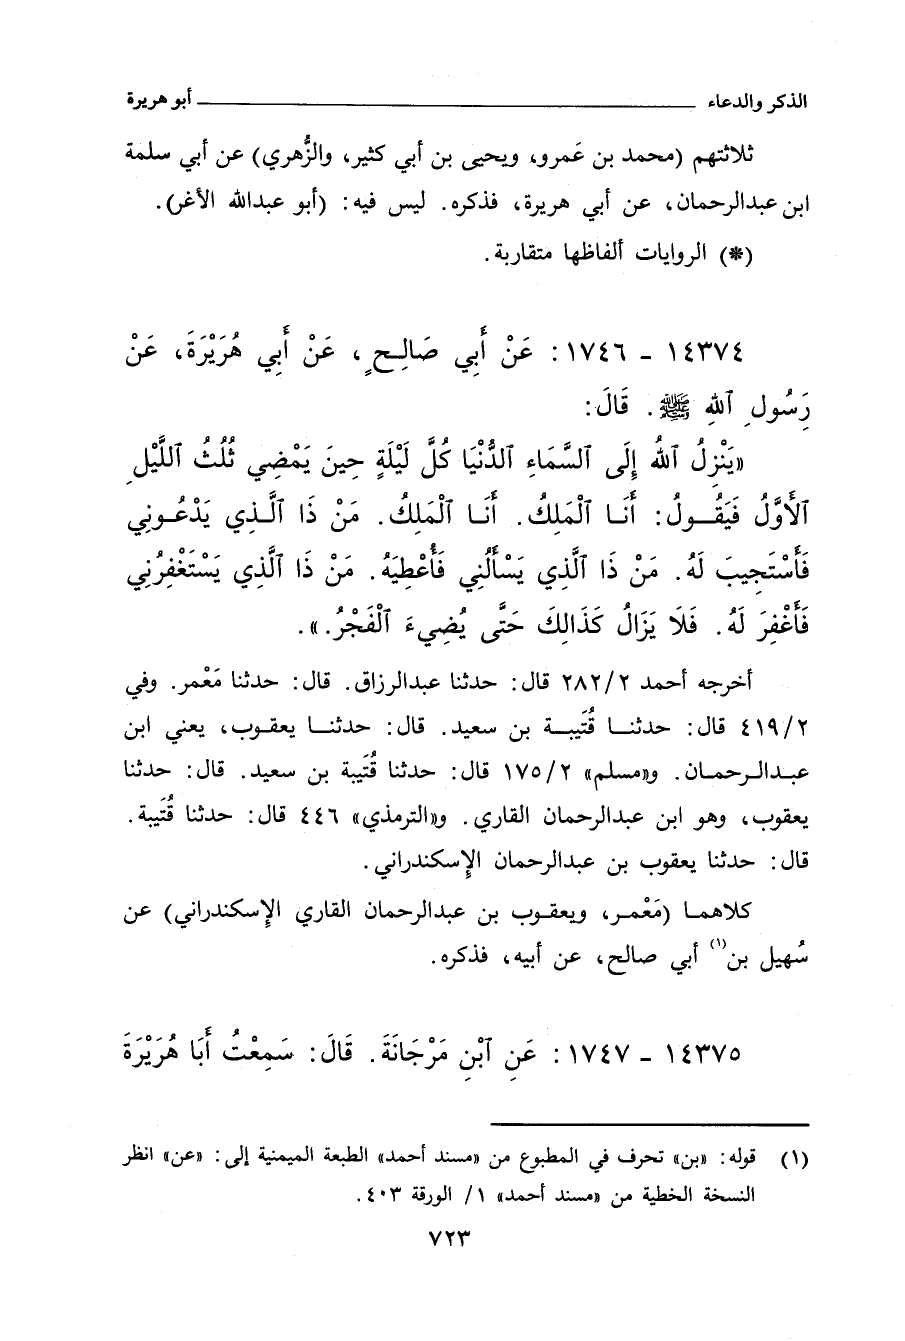 الذكر والدعاء ــــــــــــــــــــ أبو هريرة
ثلاثتهم (محمد بن عَمرو، ويحيى بن أبي كثير، والزُّهري) عن أبي سلمة
ابن عبدالرحمان، عن أبي هريرة، فذكره. ليس فيه: (أبو عبدالله الأغر).
(*) الروايات ألفاظها متقاربة.
١٤٣٧٤ - ١٧٤٦: عَنْ أَبِي صَالِحٍ، عَنْ أَبِي هُرَيْرَةَ، عَنْ
رَسُولِ ٱللهِ ﷺ. قَالَ:
«يَنْزِلُ ٱللهُ إِلَى ٱلسَّمَاءِ ٱلدُّنْيَا كُلَّ لَيْلَةٍ حِينَ يَمْضِي ثُلُثُ ٱللَّيْلِ
ٱلْأَوَّلُ فَيَقُولُ: أَنَا ٱلْمَلِكُ. أَنَا ٱلْمَلِكُ. مَنْ ذَا ٱلَّذِي يَدْعُونِي
فَأَسْتَجِيبَ لَهُ. مَنْ ذَا ٱلَّذِي يَسْأَلُنِي فَأُعْطِيَهُ. مَنْ ذَا ٱلَّذِي يَسْتَغْفِرُنِي
فَأَغْفِرَ لَهُ. فَلَا يَزَالُ كَذَالِكَ حَتَّى يُضِيءَ ٱلْفَجْرُ.».
أخرجه أحمد ٢/٢٨٢ قال: حدثنا عبدالرزاق. قال: حدثنا مَعْمر. وفي
٢/٤١٩ قال: حدثنا قُتَيبة بن سعيد. قال: حدثنا يعقوب، يعني ابن
عبدالرحمان. و«مسلم» ٢/١٧٥ قال: حدثنا قُتَيبة بن سعيد. قال: حدثنا
يعقوب، وهو ابن عبدالرحمان القاري. و«الترمذي» ٤٤٦ قال: حدثنا قُتَيبة.
قال: حدثنا يعقوب بن عبدالرحمان الإسكندراني.
كلاهما (مَعْمر، ويعقوب بن عبدالرحمان القاري الإسكندراني) عن
سُهيل بن(١) أبي صالح، عن أبيه، فذكره.
١٤٣٧٥ - ١٧٤٧: عَنِ ٱبْنِ مَرْجَانَةَ. قَالَ: سَمِعْتُ أَبَا هُرَيْرَةَ
(١) قوله: «بن» تحرف في المطبوع من «مسند أحمد» الطبعة الميمنية إلى: «عن» انظر
النسخة الخطية من «مسند أحمد» ١/ الورقة ٤٠٣.
٧٢٣